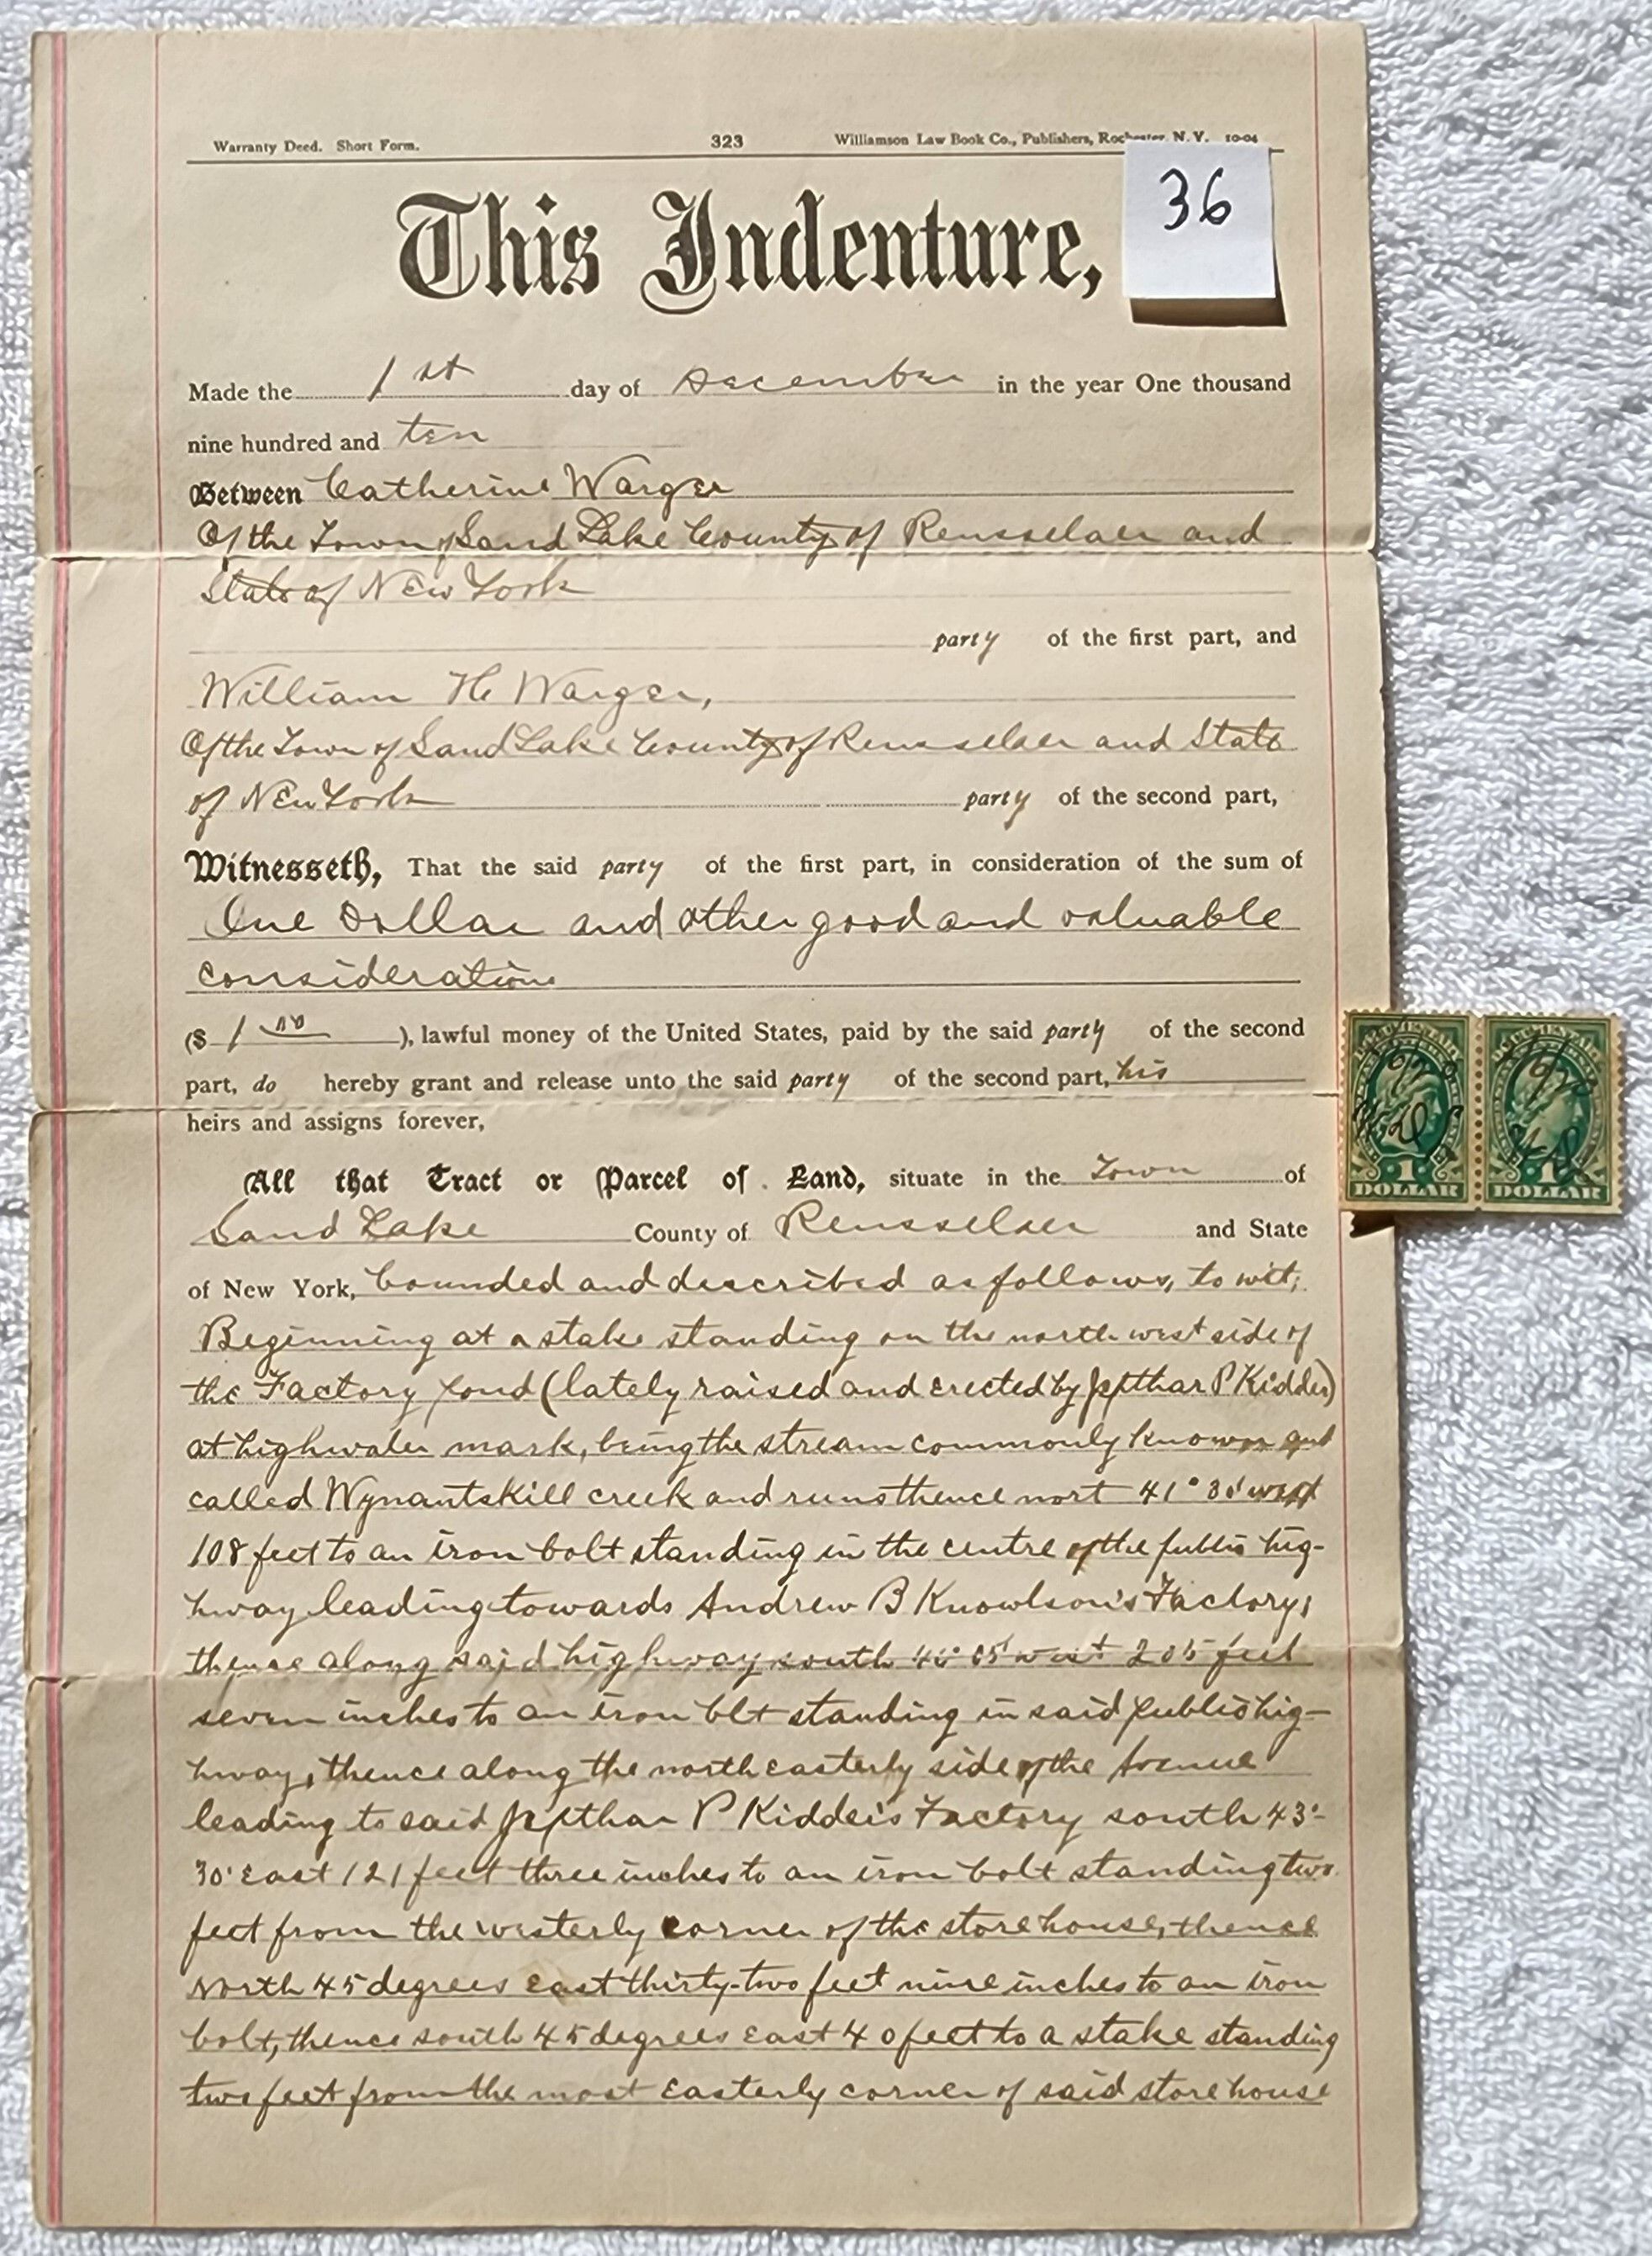 Warranty Deed. Short Form. 323 Williamson Law Book Co., Publishers, Rochester, N. Y. 10-04
36
This Indenture,
Made the 1st day of December in the year One thousand
nine hundred and ten
Between Catherine Warger
Of the Town of Sand Lake County of Rensselaer and
State of New York
party of the first part, and
William H. Warger,
Of the Town of Sand Lake County of Rensselaer and State
of New York party of the second part,
Witnesseth, That the said party of the first part, in consideration of the sum of
One Dollar and other good and valuable
considerations
($ 1 00 ), lawful money of the United States, paid by the said party of the second
part, do hereby grant and release unto the said party of the second part, his
heirs and assigns forever,
All that Tract or Parcel of Land, situate in the Town of
Sand Lake County of Rensselaer and State
of New York, bounded and described as follows, to wit;
Beginning at a stake standing on the north west side of
the Factory pond (lately raised and erected by Jepthar P Kidder)
at highwater mark, being the stream commonly known and
called Wynantskill creek and runs thence nort 41° 30' west
108 feet to an iron bolt standing in the centre of the public hig-
hway leading towards Andrew B Knowlson's Factory,
thence along said highway south 05' west 205 feet
seven inches to an iron blt standing in said public hig-
hway, thence along the north easterly side of the Avenue
leading to said Jepthar P Kidder's Factory south 43°
30' east 121 feet three inches to an iron bolt standing two
feet from the westerly corner of the store house, thence
North 45 degrees east thirty-two feet nine inches to an iron
bolt, thence south 45 degrees east 40 feet to a stake standing
two feet from the most easterly corner of said store house
1 DOLLAR
1 DOLLAR